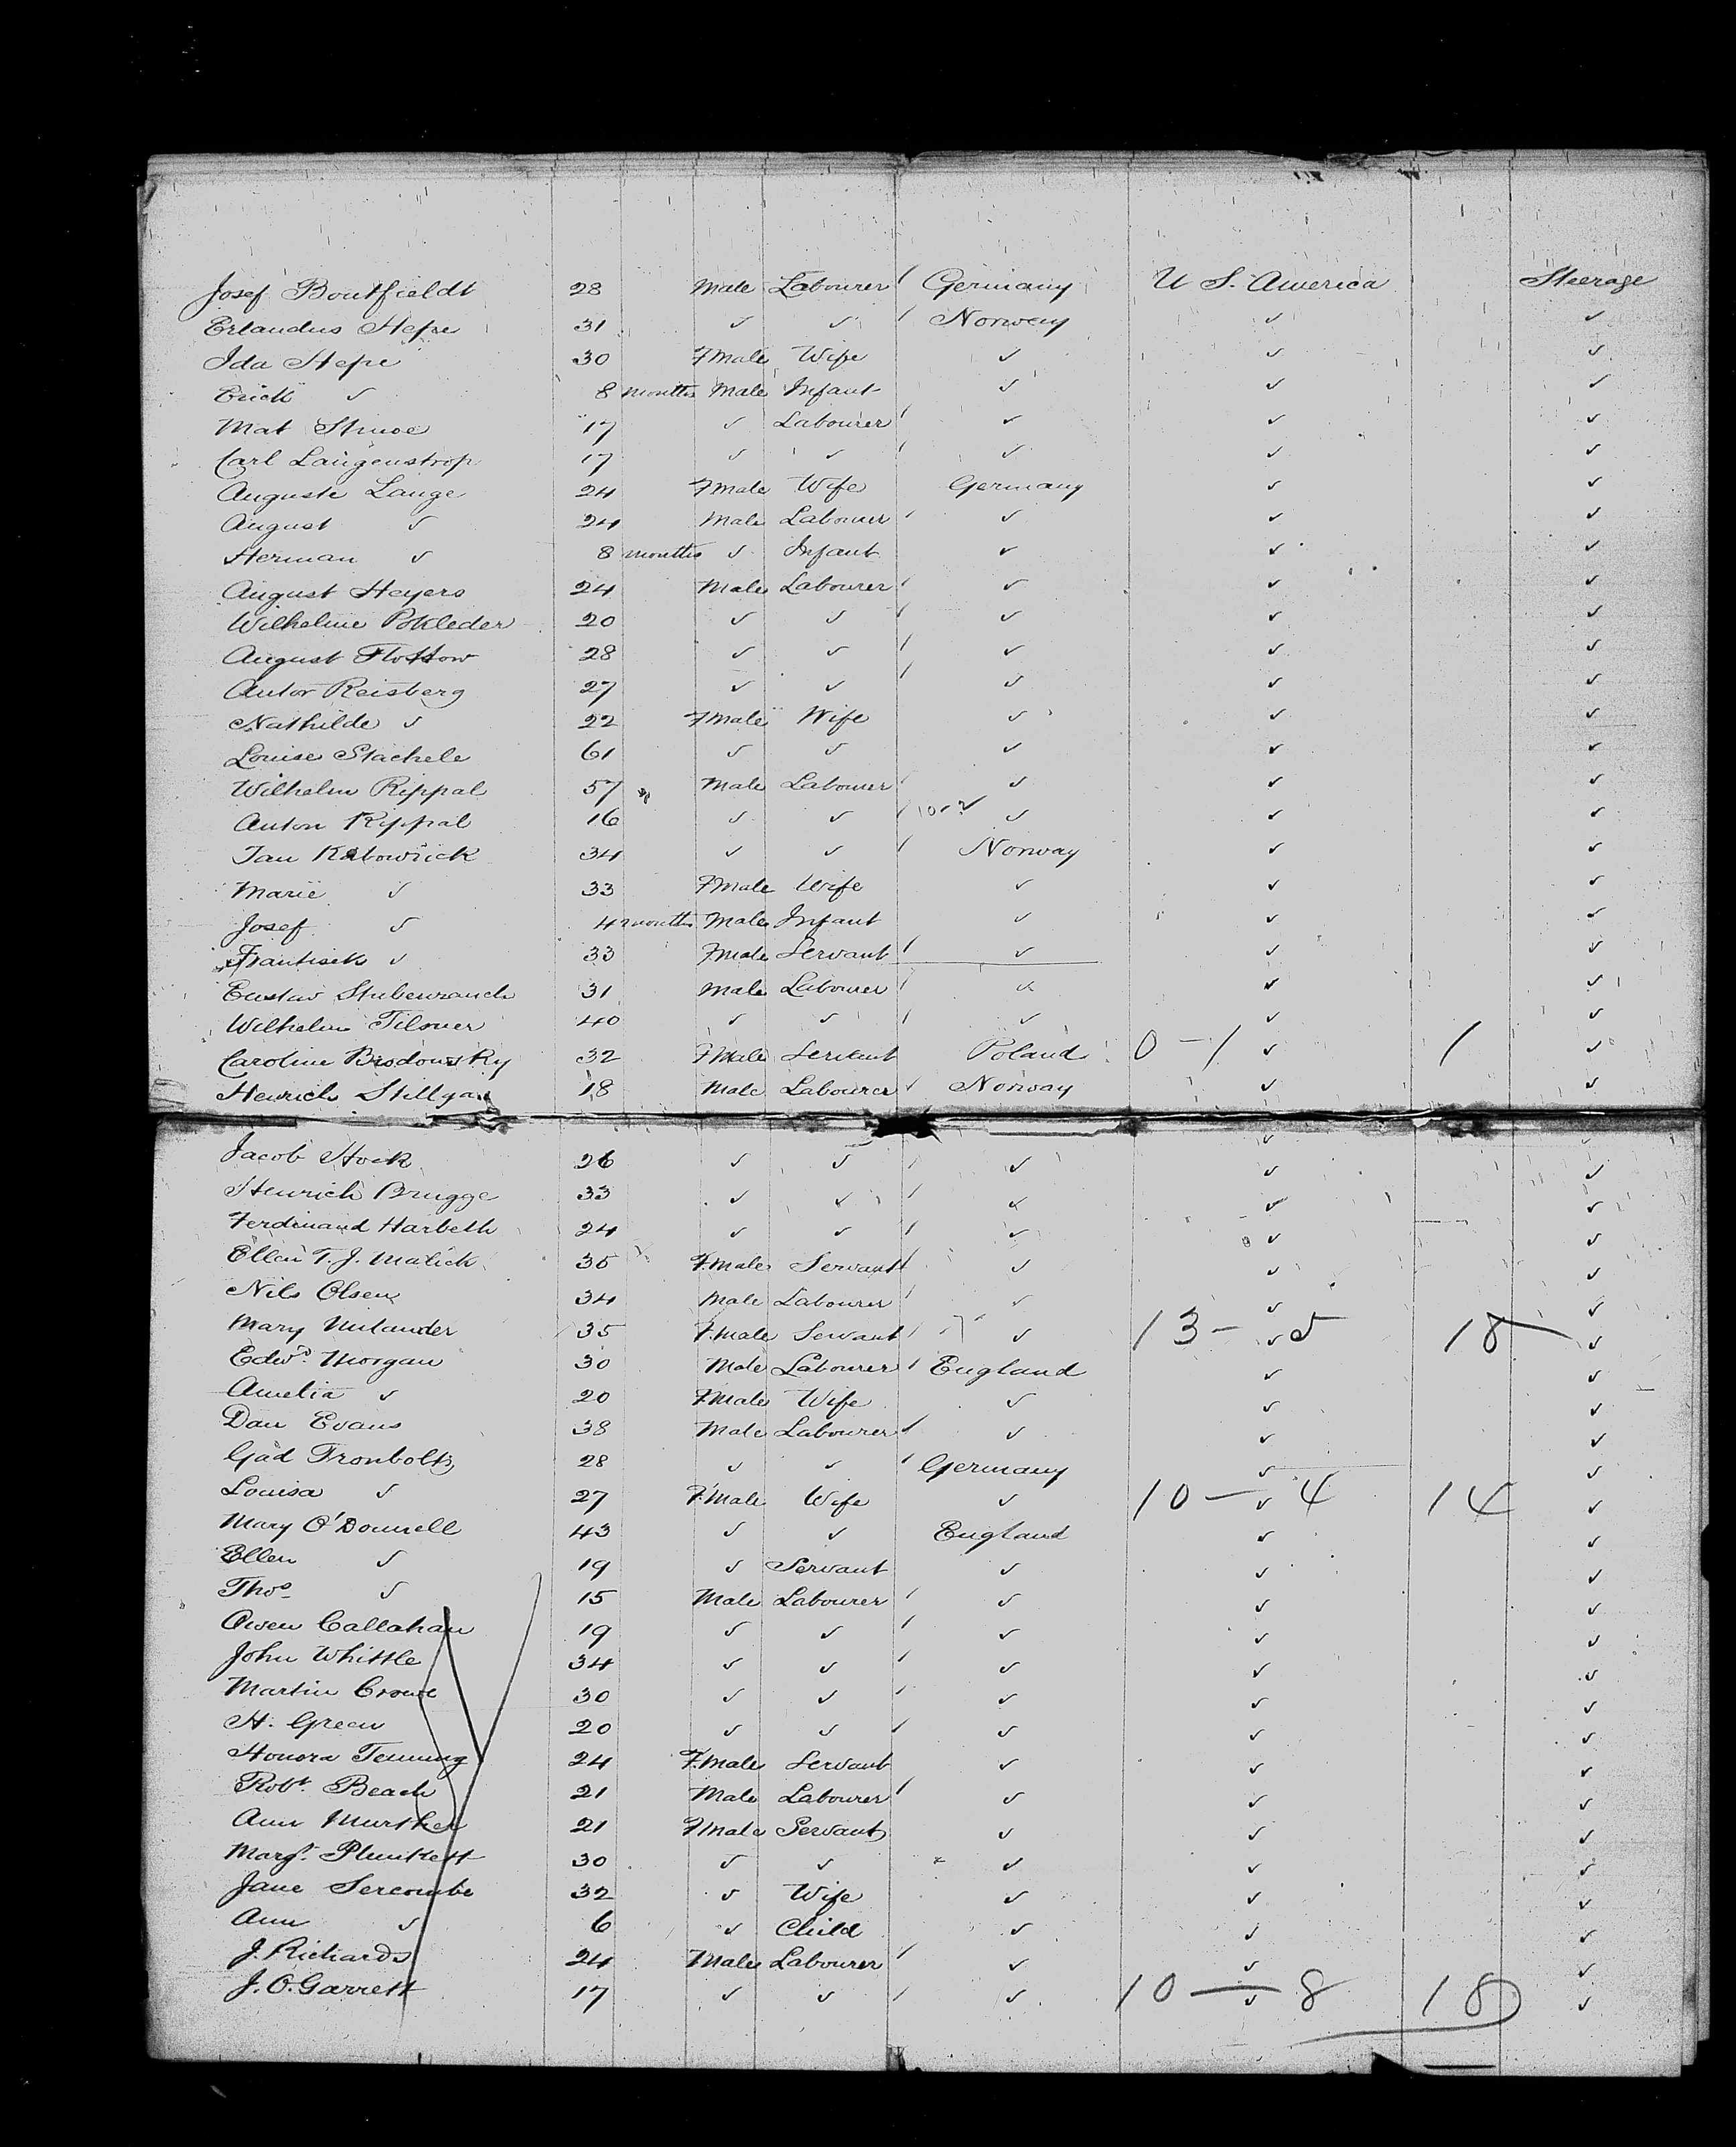 Josef Boutfieldt 28 Male Labourer / Germany U S. America Steerage
Erlandus Hepe 31 ✓ ✓ / Norway ✓ ✓
Ida Hepe 30 Fmale Wife ✓ ✓ ✓
Erick ✓ 8 months Male Infant ✓ ✓ ✓
Mat Struve 17 ✓ Labourer / ✓ ✓ ✓
Carl Langenstrop 17 ✓ ✓ / ✓ ✓ ✓
Auguste Lange 24 Fmale Wife Germany ✓ ✓
August ✓ 24 Male Labourer / ✓ ✓ ✓
Herman ✓ 8 months ✓ Infant ✓ ✓ ✓
August Heyers 24 Male Labourer / ✓ ✓ ✓
Wilheline Pokleder 20 ✓ ✓ / ✓ ✓ ✓
August Flottow 28 ✓ ✓ / ✓ ✓ ✓
Anton Reisberg 27 ✓ ✓ / ✓ ✓ ✓
Nathilde ✓ 22 Fmale Wife ✓ ✓ ✓
Louise Stachele 61 ✓ ✓ ✓ ✓ ✓
Wilhelm Rippal 57 Male Labourer / ✓ ✓ ✓
Anton Rippal 16 ✓ ✓ / 10-2 ✓ ✓ ✓
Jan Katowick 34 ✓ ✓ / Norway ✓ ✓
Marie ✓ 33 Fmale Wife ✓ ✓ ✓
Josef ✓ 4 months Male Infant ✓ ✓ ✓
Frantisek ✓ 33 Fmale Servant / ✓ ✓ ✓
Gustav Stubenrauch 31 Male Labourer / ✓ ✓ ✓
Wilhelm Tilsner 40 ✓ ✓ / ✓ ✓ ✓
Caroline Brodowsky 32 Fmale Servant Poland 0 - 1 ✓ 1 ✓
Heinrich Stillgan 18 Male Labourer / Norway ✓ ✓
Jacob Hock 26 ✓ ✓ / ✓ ✓ ✓
Heinrich Brugge 33 ✓ ✓ / ✓ ✓ ✓
Ferdinand Harbeth 24 ✓ ✓ / ✓ ✓ ✓
Ellen T. J. Malick 35 F.male Servant / ✓ ✓ ✓
Nils Olsen 34 Male Labourer / ✓ ✓ ✓
Mary Milander 35 F.male Servant / ✓ 13 - 5 ✓ 18 ✓
Edwd. Morgan 30 Male Labourer / England ✓ ✓
Amelia ✓ 20 Fmale Wife ✓ ✓ ✓
Dan Evans 38 Male Labourer / ✓ ✓ ✓
Gad Fronboltz 28 ✓ ✓ / Germany ✓ ✓
Louisa ✓ 27 F.Male Wife ✓ 10 - 4 ✓ 14 ✓
Mary O'Donnell 43 ✓ ✓ England ✓ ✓
Ellen ✓ 19 ✓ Servant ✓ ✓ ✓
Thos. ✓ 15 Male Labourer / ✓ ✓ ✓
Owen Callahan 19 ✓ ✓ / ✓ ✓ ✓
John Whittle 34 ✓ ✓ / ✓ ✓ ✓
Martin Crowe 30 ✓ ✓ / ✓ ✓ ✓
H. Green 20 ✓ ✓ / ✓ ✓ ✓
Honora Temming 24 F.male Servant ✓ ✓ ✓
Robt. Beach 21 Male Labourer / ✓ ✓ ✓
Ann 21 Fmale Servant ✓ ✓ ✓
Margt. Plunkett 30 ✓ ✓ ✓ ✓ ✓
Jane Sercombe 32 ✓ Wife ✓ ✓ ✓
Ann ✓ 6 ✓ Child ✓ ✓ ✓
J. Richards 24 Male Labourer / ✓ ✓ ✓
J. O. Garrett 17 ✓ ✓ / ✓ 10 - 8 ✓ 18 ✓